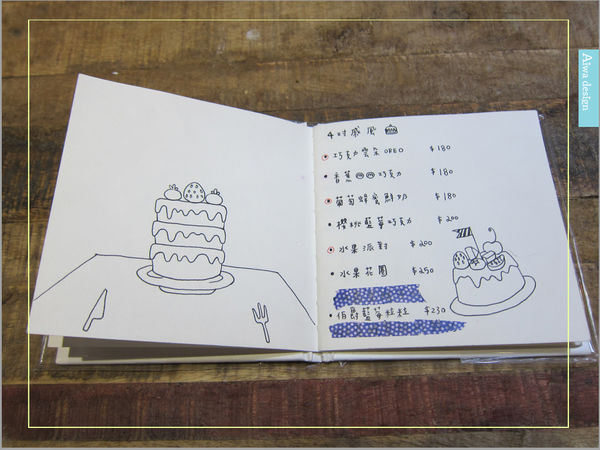 4吋戚風
巧克力雲朵 OREO $180
香蕉巧克力 $180
葡萄蜂蜜鮮奶 $180
櫻桃藍莓巧克力 $200
水果派對 $200
水果花園 $250
伯爵藍莓粒粒 $230
Aiwa design